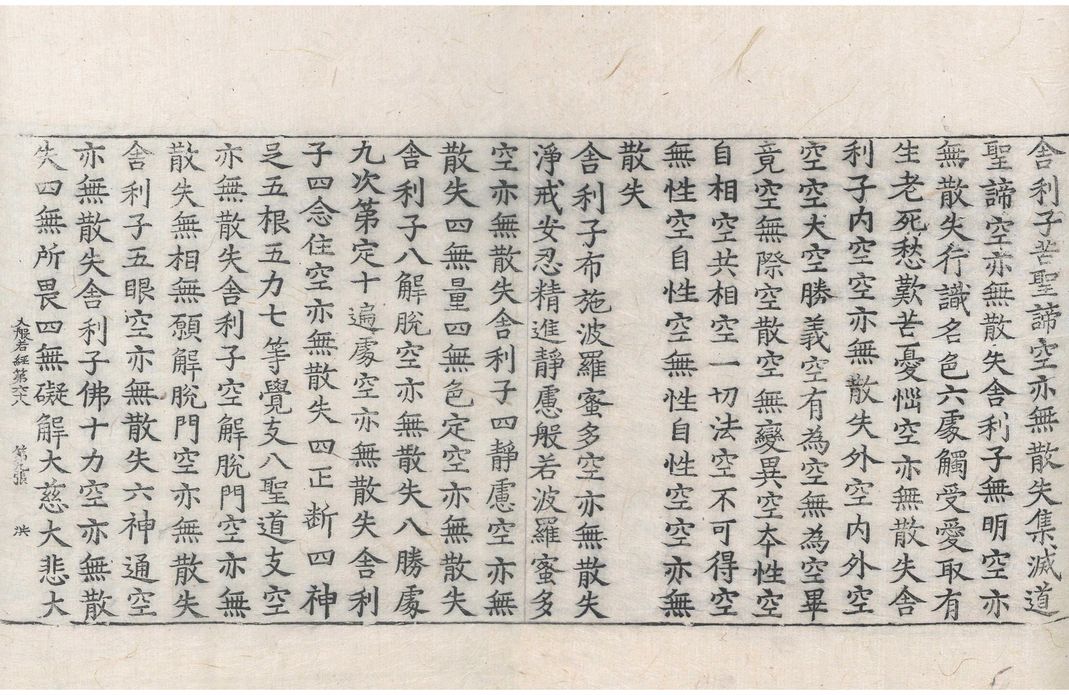 舎利子苦聖諦空亦無散失集滅道
聖諦空亦無散失舎利子無明空亦
無散失行識名色六處觸受愛取有
生老死愁歎苦憂惱空亦無散失舎
利子内空空亦無散失外空内外空
空空大空勝義空有為空無為空畢
竟空無際空散空無變異空夲性空
自相空共相空一切法空不可得空
無性空自性空無性自性空空亦無
散失
舎利子布施波羅蜜多空亦無散失
淨戒安忍精進靜慮般若波羅蜜多
空亦無散失舎利子四靜慮空亦無
散失四無量四無色定空亦無散失
舎利子八解脫空亦無散失八勝處
九次第定十遍處空亦無散失舎利
子四念住空亦無散失四正断四神
足五根五力七等覺支八聖道支空
亦無散失舎利子空解脫門空亦無
散失無相無願解脫門空亦無散失
舎利子五眼空亦無散失六神通空
亦無散失舎利子佛十力空亦無散
失四無所畏四無礙解大慈大悲大
大般若經第六十八 第九張 洪